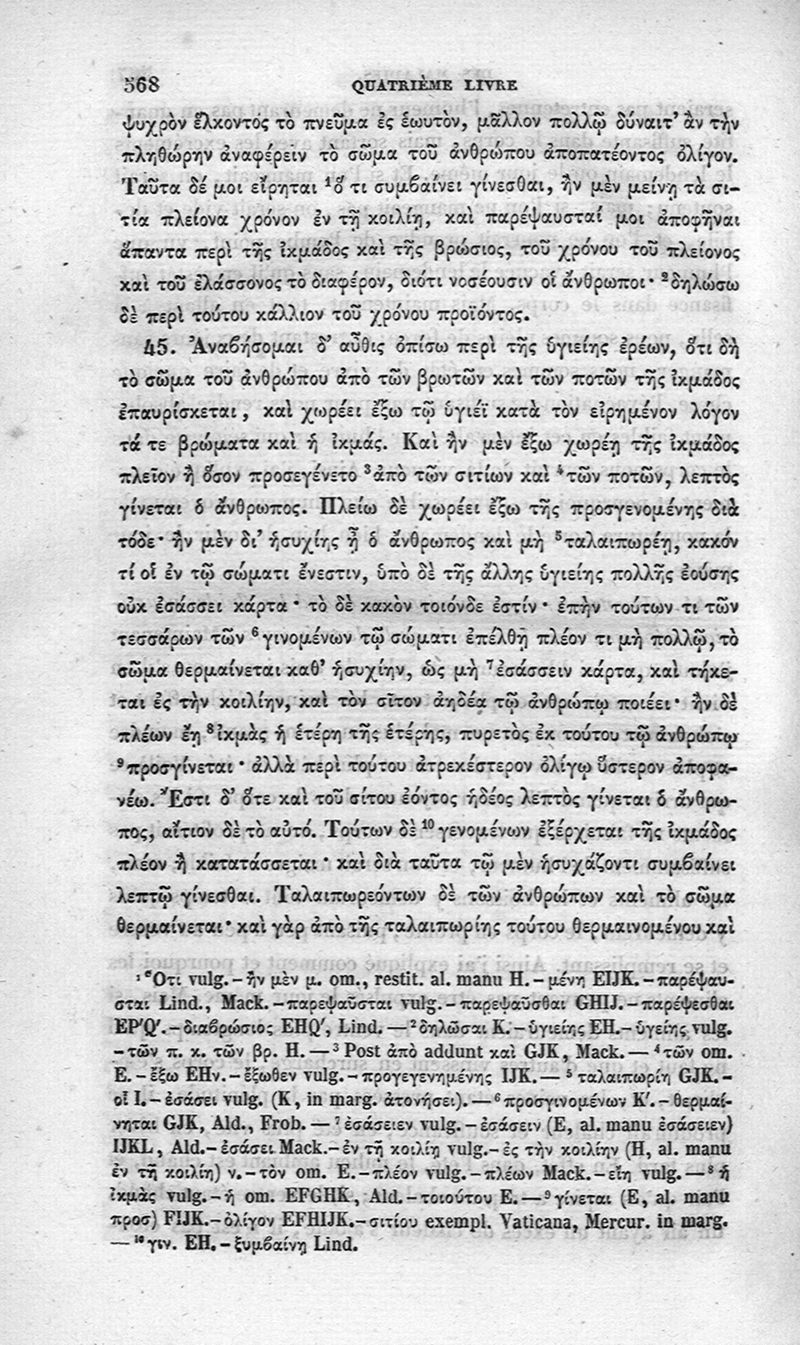 568 QUATRIÈME LIVRE
ψυχρὸν ἕλκοντός τὸ πνεῦμα ἐς ἑωυτὸν, μᾶλλον πολλῷ δύναιτ’ ἂν τὴν
πληθώρην ἀναφέρειν τὸ σῶμα τοῦ ἀνθρώπου ἀποπατέοντος ὀλίγον.
Ταῦτα δέ μοι εἴρηται ¹ὅ τι συμβαίνει γίνεσθαι, ἢν μὲν μείνῃ τὰ σι-
τία πλείονα χρόνον ἐν τῇ κοιλίῃ, καὶ παρέψαυσταί μοι ἀποφῆναι
ἅπαντα περὶ τῆς ἰκμάδος καὶ τῆς βρώσιος, τοῦ χρόνου τοῦ πλείονος
καὶ τοῦ ἐλάσσονος τὸ διαφέρον, διότι νοσέουσιν οἱ ἄνθρωποι· ²δηλώσω
δὲ περὶ τούτου κάλλιον τοῦ χρόνου προϊόντος.
45. Ἀναβήσομαι δ’ αὖθις ὀπίσω περὶ τῆς ὑγιείης ἐρέων, ὅτι δὴ
τὸ σῶμα τοῦ ἀνθρώπου ἀπὸ τῶν βρωτῶν καὶ τῶν ποτῶν τῆς ἰκμάδος
ἐπαυρίσκεται, καὶ χωρέει ἔξω τῷ ὑγιέϊ κατὰ τὸν εἰρημένον λόγον
τά τε βρώματα καὶ ἡ ἰκμάς. Καὶ ἢν μὲν ἔξω χωρέῃ τῆς ἰκμάδος
πλεῖον ἢ ὅσον προσεγένετο ³ἀπὸ τῶν σιτίων καὶ ⁴τῶν ποτῶν, λεπτὸς
γίνεται ὁ ἄνθρωπος. Πλείω δὲ χωρέει ἔξω τῆς προσγενομένης διὰ
τόδε· ἢν μὲν δι’ ἡσυχίης ᾖ ὁ ἄνθρωπος καὶ μὴ ⁵ταλαιπωρέῃ, κακόν
τί οἱ ἐν τῷ σώματι ἔνεστιν, ὑπὸ δὲ τῆς ἄλλης ὑγιείης πολλῆς ἐούσης
οὐκ ἐσάσσει κάρτα· τὸ δὲ κακὸν τοιόνδε ἐστίν· ἐπὴν τούτων τι τῶν
τεσσάρων τῶν ⁶γινομένων τῷ σώματι ἐπέλθῃ πλέον τι μὴ πολλῷ, τὸ
σῶμα θερμαίνεται καθ’ ἡσυχίην, ὡς μὴ ⁷ἐσάσσειν κάρτα, καὶ τήκε-
ται ἐς τὴν κοιλίην, καὶ τὸν σῖτον ἀηδέα τῷ ἀνθρώπῳ ποιέει· ἢν δὲ
πλέων ἔῃ ⁸ἰκμὰς ἡ ἑτέρη τῆς ἑτέρης, πυρετὸς ἐκ τούτου τῷ ἀνθρώπῳ
⁹προσγίνεται· ἀλλὰ περὶ τούτου ἀτρεκέστερον ὀλίγῳ ὕστερον ἀποφα-
νέω. Ἔστι δ’ ὅτε καὶ τοῦ σίτου ἐόντος ἡδέος λεπτὸς γίνεται ὁ ἄνθρω-
πος, αἴτιον δὲ τὸ αὐτό. Τούτων δὲ ¹⁰γενομένων ἐξέρχεται τῆς ἰκμάδος
πλέον ἢ κατατάσσεται· καὶ διὰ ταῦτα τῷ μὲν ἡσυχάζοντι συμβαίνει
λεπτῷ γίνεσθαι. Ταλαιπωρεόντων δὲ τῶν ἀνθρώπων καὶ τὸ σῶμα
θερμαίνεται· καὶ γὰρ ἀπὸ τῆς ταλαιπωρίης τούτου θερμαινομένου καὶ
¹ Ὅτι vulg. – ἢν μὲν μ. om., restit. al. manu H. – μένῃ EIJK. – παρέψαυ-
σται Lind., Mack. – παρεψαῦσται vulg. – παρεψαῦσθαι GHIJ. – παρέψεσθαι
EP'Q'. – διαβρώσιος EHQ', Lind. — ² δηλῶσαι K. – ὑγιείης EH. – ὑγείης vulg.
– τῶν π. κ. τῶν βρ. H. — ³ Post ἀπὸ addunt καὶ GJK, Mack. — ⁴ τῶν om.
E. – ἔξω EHν. – ἔξωθεν vulg. – προγεγενημένης IJK. — ⁵ ταλαιπωρίη GJK. –
οἷ I. – ἐσάσει vulg. (K, in marg. ἀτονήσει). — ⁶ προσγινομένων K'. – θερμαί-
νηται GJK, Ald., Frob. — ⁷ ἐσάσειεν vulg. – ἐσάσειν (E, al. manu ἐσάσειεν)
IJKL, Ald. – ἐσάσει Mack. – ἐν τῇ κοιλίῃ vulg. – ἐς τὴν κοιλίην (H, al. manu
ἐν τῇ κοιλίῃ) ν. – τὸν om. E. – πλέον vulg. – πλέων Mack. – εἴη vulg. — ⁸ ἡ
ἰκμὰς vulg. – ἡ om. EFGHK, Ald. – τοιούτου E. — ⁹ γίνεται (E, al. manu
προσ) FIJK. – ὀλίγον EFHIJK. – σιτίου exempl. Vaticana, Mercur. in marg.
— ¹⁰ γιν. EH. – ξυμβαίνῃ Lind.